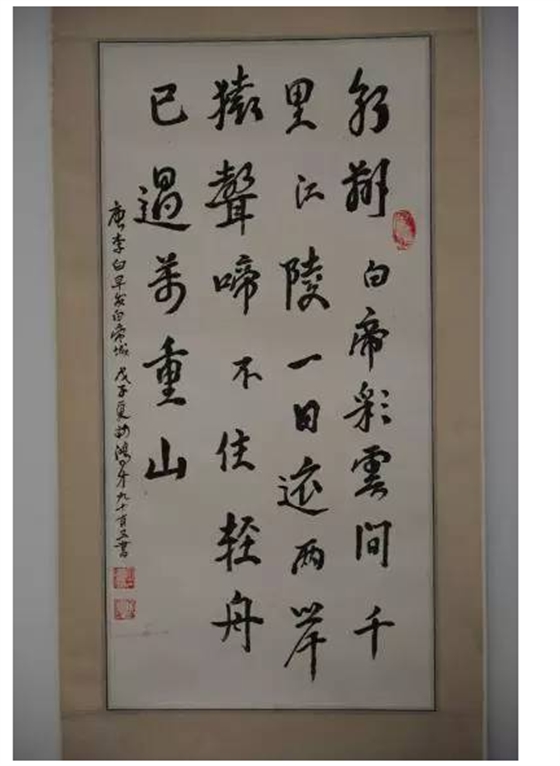 朝辭白帝彩雲間千
里江陵一日還兩岸
猿聲啼不住輕舟
已過萬重山
唐李白早发白帝城 戊子夏 九十有五書